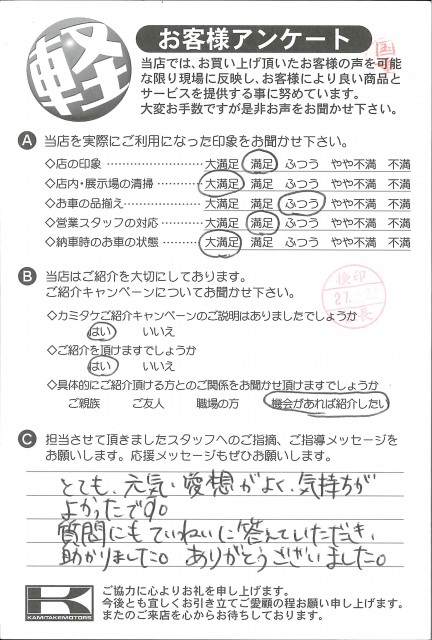 軽
お客様アンケート
当店では、お買い上げ頂いたお客様の声を可能
な限り現場に反映し、お客様により良い商品と
サービスを提供する事に努めています。
大変お手数ですが是非お声をお聞かせ下さい。
A 当店を実際にご利用になった印象をお聞かせ下さい。
◇店の印象 大満足 満足 ふつう やや不満 不満
◇店内・展示場の清掃 大満足 満足 ふつう やや不満 不満
◇お車の品揃え 大満足 満足 ふつう やや不満 不満
◇営業スタッフの対応 大満足 満足 ふつう やや不満 不満
◇納車時のお車の状態 大満足 満足 ふつう やや不満 不満
B 当店はご紹介を大切にしております。
ご紹介キャンペーンについてお聞かせ下さい。
検印
長
◇カミタケご紹介キャンペーンのご説明はありましたでしょうか
はい いいえ
◇ご紹介を頂けますでしょうか
はい いいえ
◇具体的にご紹介頂ける方とのご関係をお聞かせ頂けますでしょうか
ご親族 ご友人 職場の方 機会があれば紹介したい
C 担当させて頂きましたスタッフへのご指摘、ご指導メッセージを
お願いします。応援メッセージもぜひお願します。
とても、元気い愛想がよく、気持ちが
よかったです。
質問にもていねいに答えていただき、
助かりました。ありがとうございました。
K
KAMITAKEMOTORS
ご協力に心よりお礼を申し上げます。
今後とも宜しくお引き立てご愛顧の程お願い申し上げます。
またのご来店を心からお待ちしております。